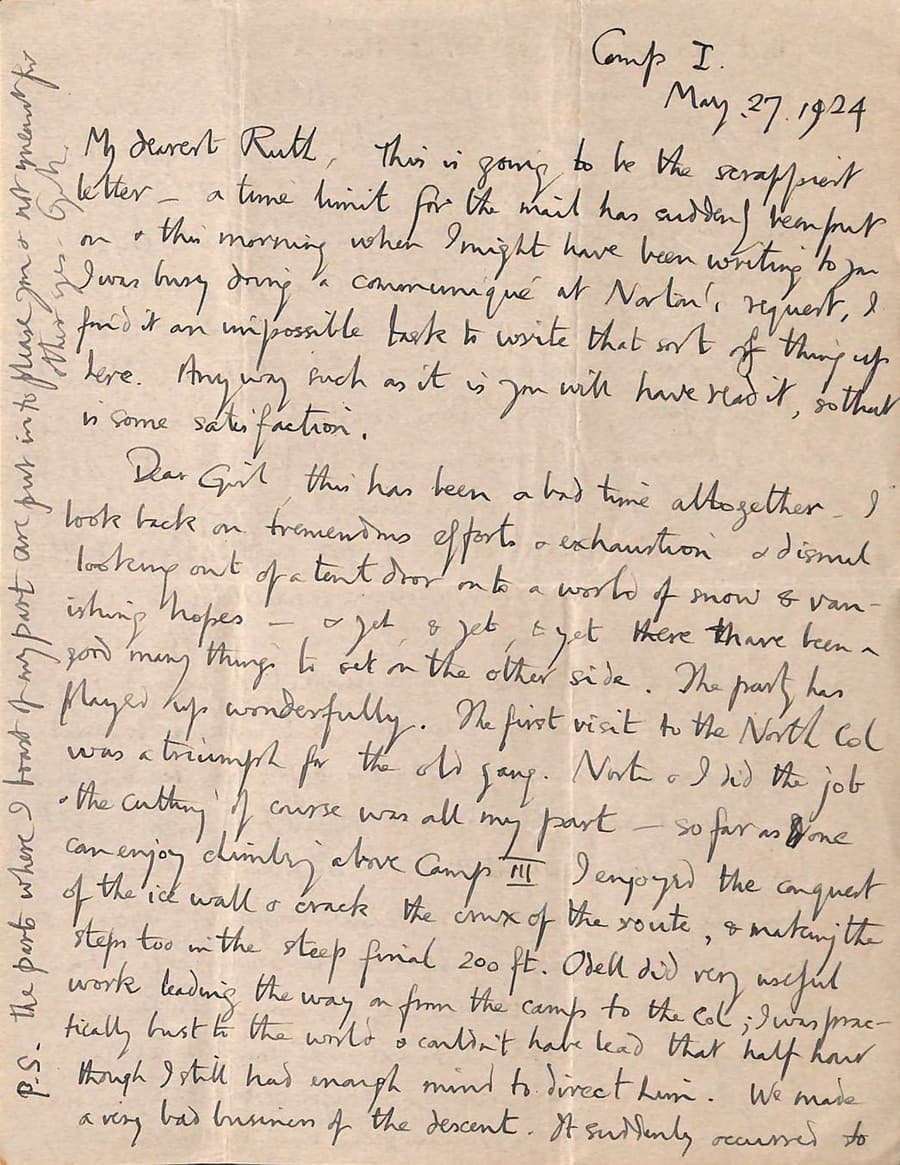 Camp I.
May. 27. 1924
My dearest Ruth, This is going to be the scrappiest
letter – a time limit for the mail has suddenly been put
on & this morning when I might have been writing to you
I was busy doing a communiqué at Norton's request, I
find it an impossible task to write that sort of thing up
here. Anyway such as it is you will have read it, so that
is some satisfaction.
Dear Girl, this has been a bad time altogether – I
look back on tremendous efforts & exhaustion & dismal
looking out of a tent door onto a world of snow & van-
ishing hopes – & yet, & yet, & yet there have been a
good many things to set on the other side. The party has
played up wonderfully. The first visit to the North Col
was a triumph for the old gang. Norton & I did the job
& the cutting of course was all my part – so far as one
can enjoy climbing above Camp III I enjoyed the conquest
of the ice wall & crack the crux of the route, & making the
steps too in the steep final 200 ft. Odell did very useful
work leading the way on from the camp to the Col; I was prac-
tically bust to the world & couldn't have lead that half hour
though I still had enough mind to direct him. We made
a very bad business of the descent. It suddenly occurred to
P.S. the parts where I boast of my part are put in to please you & not meant for
other eyes. G.M.